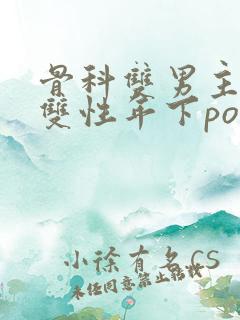 骨科雙男主
雙性年下po
小徐有名CS
未任同意禁止轉載